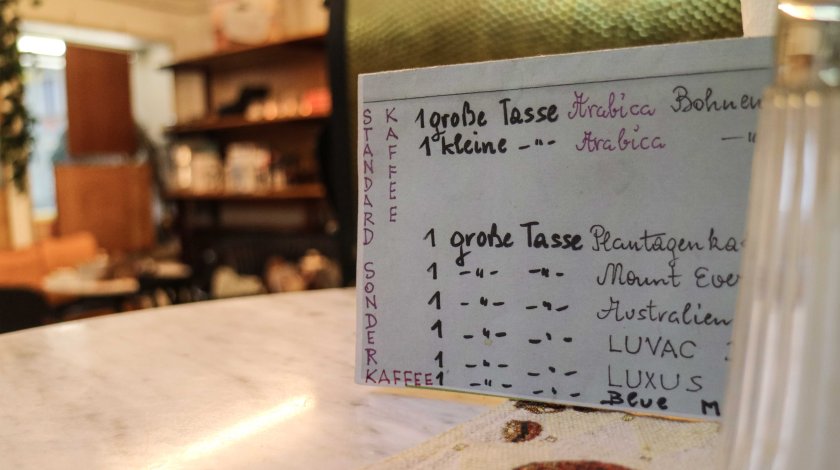 STANDARD KAFFEE
1 große Tasse Arabica Bohnen
1 kleine -"- Arabica -"
SONDER KAFFEE
1 große Tasse Plantagenka
1 -"- -"- Mount Eve
1 -"- -"- Australien
1 -"- -"- LUVAC
1 -"- -"- LUXUS
-"- -"- BLUE M